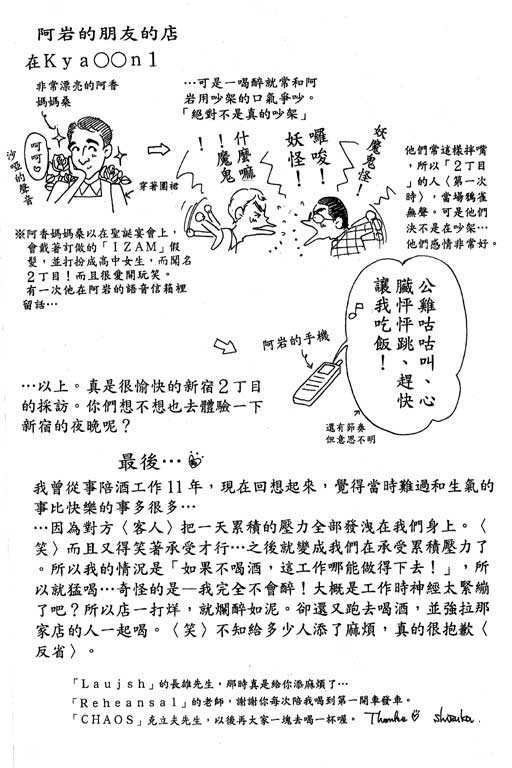 阿岩的朋友的店
在Kya○○n1
非常漂亮的阿香
媽媽桑
呵呵
沙啞的聲音
穿著圍裙
…可是一喝醉就常和阿
岩用吵架的口氣爭吵。
「絕對不是真的吵架」
什麼嘛
！魔鬼
！
囉唆！
妖怪！
妖魔鬼怪！
他們常這樣拌嘴
，所以「2丁目
」的人〈第一次
時〉，當場鴉雀
無聲。可是他們
決不是在吵架…
他們感情非常好。
※阿香媽媽桑以在聖誕宴會上，
會戴著訂做的「IZAM」假
髮，並打扮成高中女生，而聞名
2丁目！而且很愛開玩笑。
有一次他在阿岩的語音信箱裡
留話…
公雞咕咕叫、心
臟怦怦跳、趕快
讓我吃飯！
阿岩的手機
還有節奏
但意思不明
…以上。真是很愉快的新宿2丁目
的採訪。你們想不想也去體驗一下
新宿的夜晚呢？
最後…
我曾從事陪酒工作11年，現在回想起來，覺得當時難過和生氣的
事比快樂的事多很多…
…因為對方〈客人〉把一天累積的壓力全部發洩在我們身上。〈
笑〉而且又得笑著承受才行…之後就變成我們在承受累積壓力了
。所以我的情況是「如果不喝酒，這工作哪能做得下去！」，所
以就猛喝…奇怪的是—我完全不會醉！大概是工作時神經太緊繃
了吧？所以店一打烊，就爛醉如泥。卻還又跑去喝酒，並強拉那
家店的人一起喝。〈笑〉不知給多少人添了麻煩，真的很抱歉〈
反省〉。
「Laujsh」的長雄先生，那時真是給你添麻煩了…
「Reheansal」的老師，謝謝你每次陪我喝到第一開車發車。
「CHAOS」克立夫先生，以後再大家一塊去喝一杯喔。 Thanks shizuka.